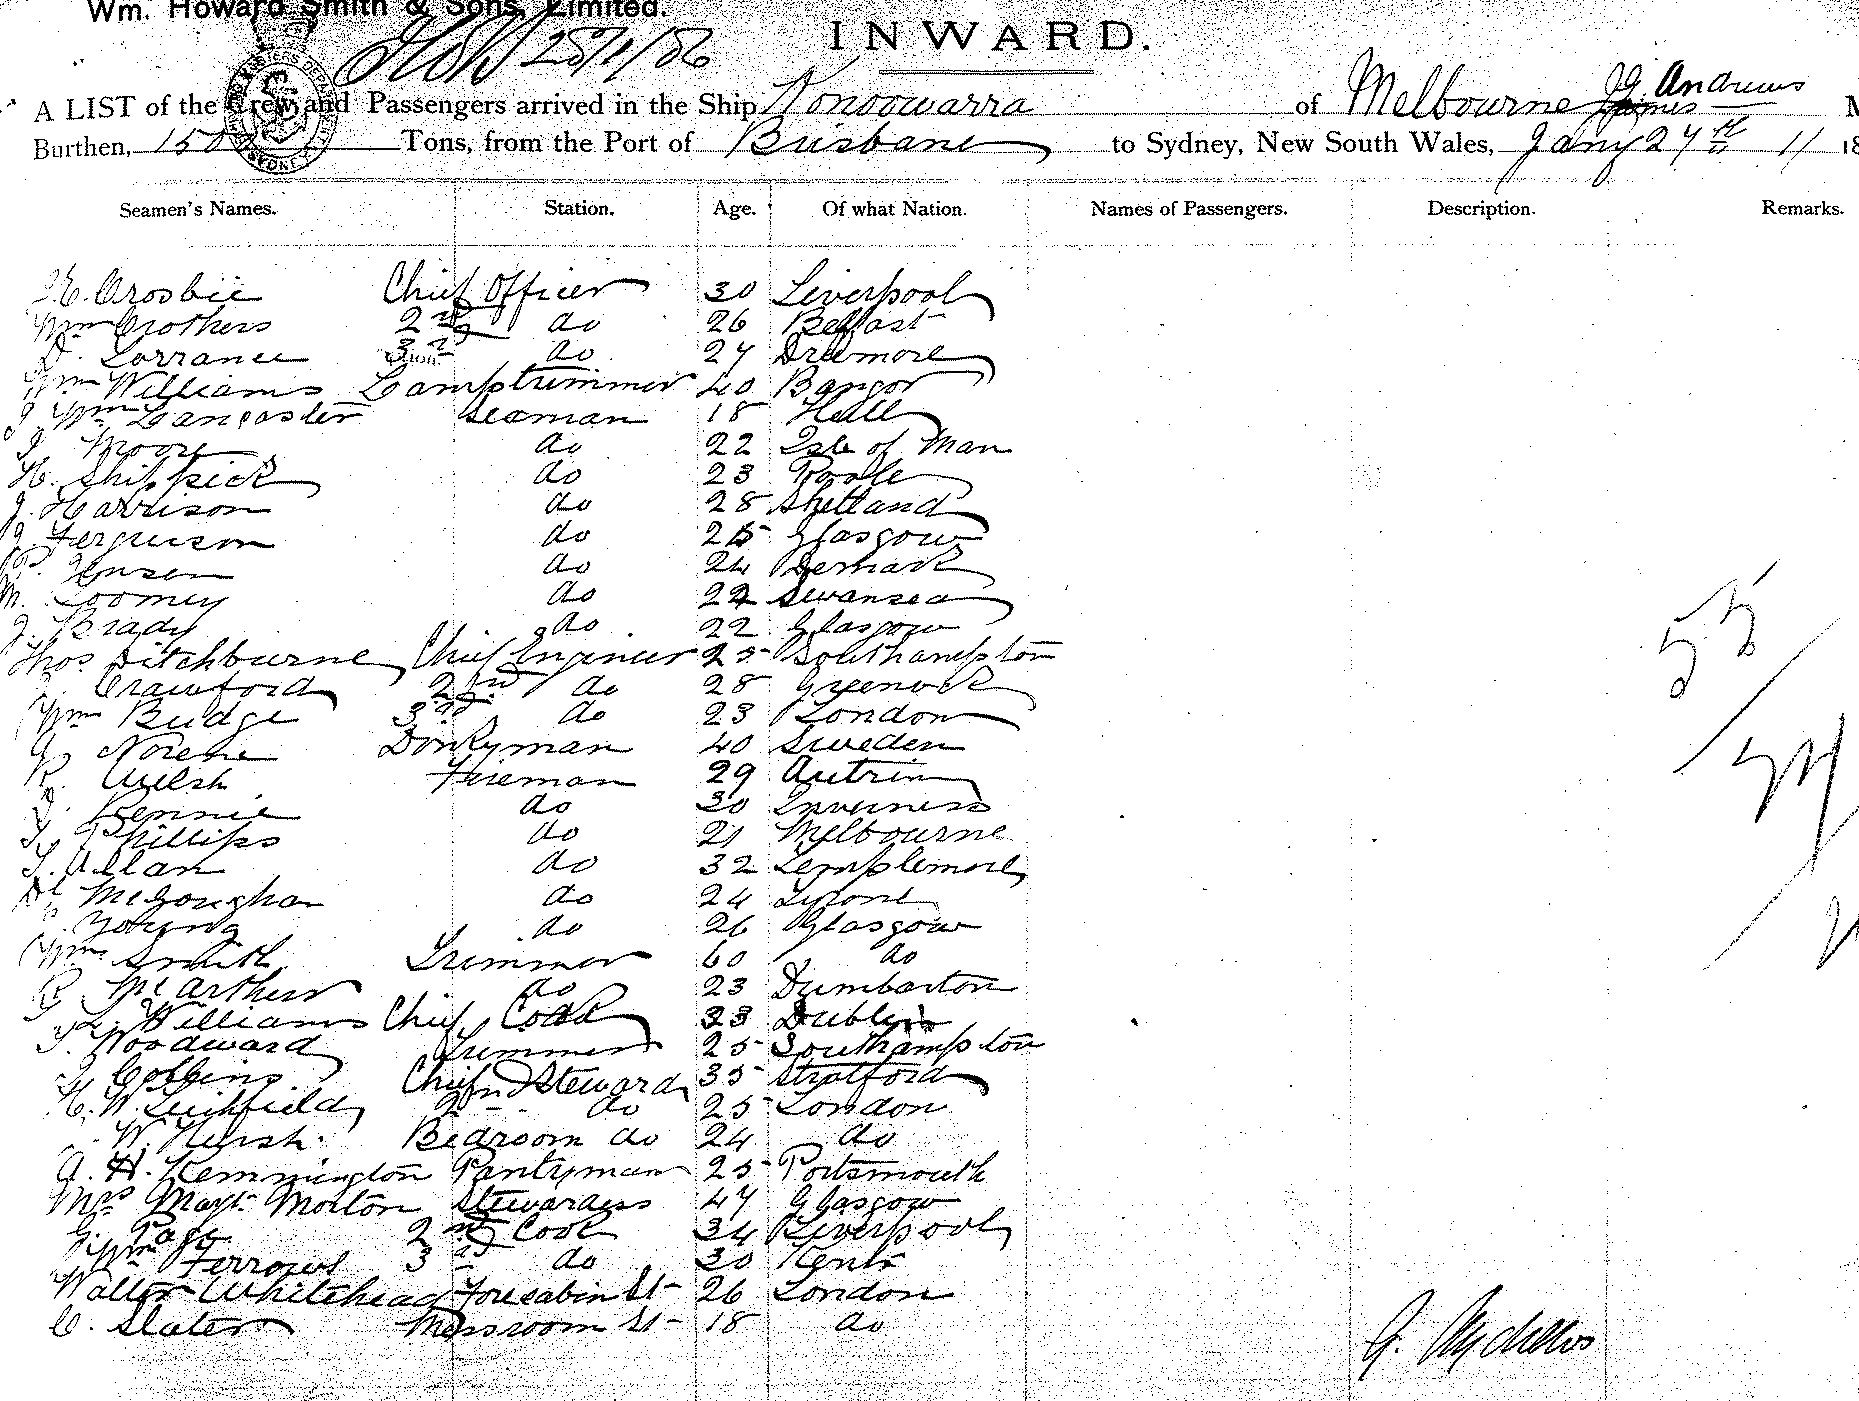 Wm. Howard Smith & Sons, Limited.
INWARD.
A LIST of the Crew and Passengers arrived in the Ship Konoowarra of Melbourne J.G. Andrews
Burthen, Tons, from the Port of Brisbane to Sydney, New South Wales, Jany 24th 11 18
Seamen's Names. Station. Age. Of what Nation. Names of Passengers. Description. Remarks.
Crosbie Chief Officer 30 Liverpool
Wm Crothers 2nd do 26 Belfast
D. Lorrance 3rd do 27 Dromore
Wm Williams Lamptrimmer 40 Bangor
J Wm Lancaster Seaman 18 Hull
J. Moore do 22 Isle of Man
H. Shippick do 23 Poole
J. Harrison do 28 Shetland
J. Ferguson do 25 Glasgow
P. Jensen do 24 Demark
M. Toomey do 22 Swansea
J. Brady do 22 Glasgow
Thos Ditchburne Chief Engineer 25 Southampton
Crawford 2nd do 28 Greenock
Wm Budge 3rd do 23 London
Norene Donkyman 40 Sweden
R. Welsh Fireman 29 Antrim
J. Rennie do 30 Inverness
J. Phillips do 21 Melbourne
T. Allan do 32 Templemore
McGoughan do 24 Tyrone
Young do 26 Glasgow
Wm Smith Trimmer 60 do
McArthur do 23 Dumbarton
Williams Chief Cook 33 Dublin
T. Woodward Trimmer 25 Southampton
J. Gobbins Chief Steward 35 Stratford
H. W. Lichfield 2nd do 25 London
W. Hersh Bedroom do 24 do
A. H. Kemmington Pantryman 25 Portsmouth
Mrs Magt. Morton Stewardess 47 Glasgow
G. Page 2nd Cook 34 Liverpool
Wm Ferrows 3rd do 30 Kent
Walter Whitehead Forecabin St 26 London
C. Slater Messroom St 18 do
J. Andrews